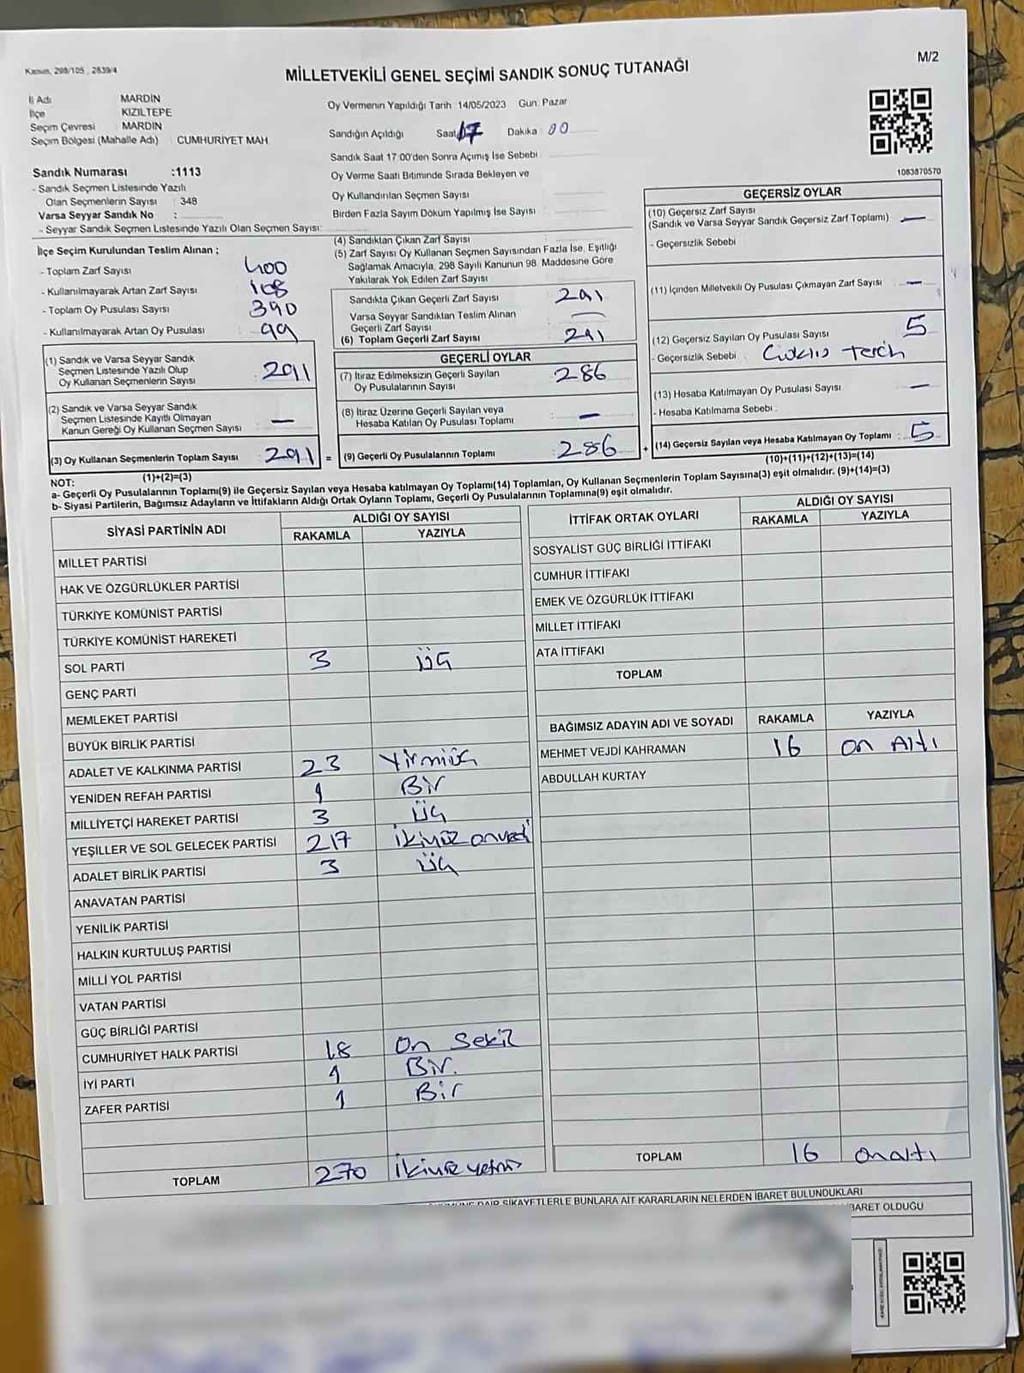 Kanun, 298/105 , 2839/4
M/2
MİLLETVEKİLİ GENEL SEÇİMİ SANDIK SONUÇ TUTANAĞI
İl Adı MARDİN
İlçe KIZILTEPE
Seçim Çevresi MARDİN
Seçim Bölgesi (Mahalle Adı) CUMHURİYET MAH
Oy Vermenin Yapıldığı Tarih 14/05/2023 Gün. Pazar
Sandığın Açıldığı Saat 17 Dakika 00
Sandık Saat 17:00'den Sonra Açılmış İse Sebebi
Oy Verme Saati Bitiminde Sırada Bekleyen ve
Oy Kullandırılan Seçmen Sayısı
Birden Fazla Sayım Döküm Yapılmış İse Sayısı
1083870570
Sandık Numarası :1113
- Sandık Seçmen Listesinde Yazılı
Olan Seçmenlerin Sayısı : 348
Varsa Seyyar Sandık No :
- Seyyar Sandık Seçmen Listesinde Yazılı Olan Seçmen Sayısı:
İlçe Seçim Kurulundan Teslim Alınan ;
- Toplam Zarf Sayısı 400
- Kullanılmayarak Artan Zarf Sayısı 108
- Toplam Oy Pusulası Sayısı 390
- Kullanılmayarak Artan Oy Pusulası 99
(1) Sandık ve Varsa Seyyar Sandık
Seçmen Listesinde Yazılı Olup
Oy Kullanan Seçmenlerin Sayısı 291
(2) Sandık ve Varsa Seyyar Sandık
Seçmen Listesinde Kayıtlı Olmayan
Kanun Gereği Oy Kullanan Seçmen Sayısı : —
(3) Oy Kullanan Seçmenlerin Toplam Sayısı 291 =
(1)+(2)=(3)
(4) Sandıktan Çıkan Zarf Sayısı
(5) Zarf Sayısı Oy Kullanan Seçmen Sayısından Fazla İse, Eşitliği
Sağlamak Amacıyla, 298 Sayılı Kanunun 98. Maddesine Göre
Yakılarak Yok Edilen Zarf Sayısı
Sandıkta Çıkan Geçerli Zarf Sayısı 291
Varsa Seyyar Sandıktan Teslim Alınan
Geçerli Zarf Sayısı —
(6) Toplam Geçerli Zarf Sayısı 291
GEÇERLİ OYLAR
(7) İtiraz Edilmeksizin Geçerli Sayılan
Oy Pusulalarının Sayısı 286
(8) İtiraz Üzerine Geçerli Sayılan veya
Hesaba Katılan Oy Pusulası Toplamı —
(9) Geçerli Oy Pusulalarının Toplamı 286 +
GEÇERSİZ OYLAR
(10) Geçersiz Zarf Sayısı
(Sandık ve Varsa Seyyar Sandık Geçersiz Zarf Toplamı) —
- Geçersizlik Sebebi
(11) İçinden Milletvekili Oy Pusulası Çıkmayan Zarf Sayısı —
(12) Geçersiz Sayılan Oy Pusulası Sayısı 5
- Geçersizlik Sebebi
(13) Hesaba Katılmayan Oy Pusulası Sayısı —
- Hesaba Katılmama Sebebi :
(14) Geçersiz Sayılan veya Hesaba Katılmayan Oy Toplamı : 5
(10)+(11)+(12)+(13)=(14)
NOT:
a- Geçerli Oy Pusulalarının Toplamı(9) ile Geçersiz Sayılan veya Hesaba katılmayan Oy Toplamı(14) Toplamları, Oy Kullanan Seçmenlerin Toplam Sayısına(3) eşit olmalıdır. (9)+(14)=(3)
b- Siyasi Partilerin, Bağımsız Adayların ve İttifakların Aldığı Ortak Oyların Toplamı, Geçerli Oy Pusulalarının Toplamına(9) eşit olmalıdır.
SİYASİ PARTİNİN ADI ALDIĞI OY SAYISI
RAKAMLA YAZIYLA
MİLLET PARTİSİ
HAK VE ÖZGÜRLÜKLER PARTİSİ
TÜRKİYE KOMÜNİST PARTİSİ
TÜRKİYE KOMÜNİST HAREKETİ
SOL PARTİ 3 üç
GENÇ PARTİ
MEMLEKET PARTİSİ
BÜYÜK BİRLİK PARTİSİ
ADALET VE KALKINMA PARTİSİ 23 Yirmiüç
YENİDEN REFAH PARTİSİ 1 Bir
MİLLİYETÇİ HAREKET PARTİSİ 3 üç
YEŞİLLER VE SOL GELECEK PARTİSİ 217 ikiyüz onyedi
ADALET BİRLİK PARTİSİ 3 üç
ANAVATAN PARTİSİ
YENİLİK PARTİSİ
HALKIN KURTULUŞ PARTİSİ
MİLLİ YOL PARTİSİ
VATAN PARTİSİ
GÜÇ BİRLİĞİ PARTİSİ
CUMHURİYET HALK PARTİSİ 18 On Sekiz
İYİ PARTİ 1 Bir.
ZAFER PARTİSİ 1 Bir
TOPLAM 270 ikiyüz yetmiş
İTTİFAK ORTAK OYLARI ALDIĞI OY SAYISI
RAKAMLA YAZIYLA
SOSYALİST GÜÇ BİRLİĞİ İTTİFAKI
CUMHUR İTTİFAKI
EMEK VE ÖZGÜRLÜK İTTİFAKI
MİLLET İTTİFAKI
ATA İTTİFAKI
TOPLAM
BAĞIMSIZ ADAYIN ADI VE SOYADI RAKAMLA YAZIYLA
MEHMET VEJDİ KAHRAMAN 16 on Altı
ABDULLAH KURTAY
TOPLAM 16 onaltı
DAİR ŞİKAYETLERLE BUNLARA AİT KARARLARIN NELERDEN İBARET BULUNDUKLARI
İBARET OLDUĞU